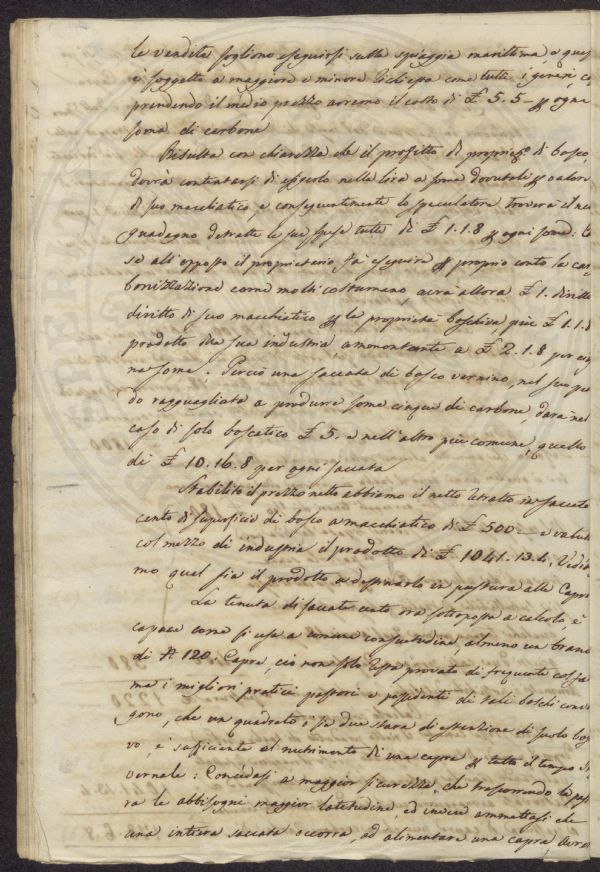 le vendite sogliono eseguirsi sulla spiaggia marittima, e
è soggetta a maggiore e minore richiesta come tutti i generi,
prendendo il medio prezzo avremo il costo di £ 5.5 – ogni
soma di carbone
Risulta con chiarezza che il profitto di di bosco,
dovrà contentarsi di nella lira a soma dovutoli valore
di suo macchiatico, e conseguentemente lo speculatore troverà il
guadagno detratte le sue spese tutte di £ 1.1.8 ogni soma:
se all'opposto il proprietario fà eseguire proprio conto la car
bonizzazione come molti costumano, avrà allora £ 1. diritto
diritto di suo macchiatico la proprietà boschiva più £ 1.1.8
prodotto della sua industria, ammontante a £ 2.1.8 per
na soma. Perciò una saccata di bosco nel suo
do ragguagliata a produrre some cinque di carbone, darà nel
caso di solo boscatico £ 5. e nell'altro più comune, quello
di £ 10.16.8 per ogni saccata
Stabilito il prezzo netto abbiamo il netto ritratto in saccate
cento di superficie di bosco a macchiatico di £ 500 — e
col mezzo di industria il prodotto di £ 1041.13.4, Vedia
mo qual sia il prodotto a destinarlo in pastura alle Capre
La tenuta di saccate cento ora sottoposta a calcolo è
capace come si usa a comune consuetudine, almeno un branco
di N 120 Capre, ciò non solo provato di frequente
ma i migliori pratici pastori e possidenti di tali boschi
gono, che un quadrato o sia due stara di estensione di suolo
vo, è sufficiente al nutrimento di una capra tutto il tempo
vernale: Concedasi a maggior sicurezza, che trascorrendo la
ra le abbisogni maggior latitudine, ed invece ammettasi che
una intiera saccata occorra, ad alimentare una capra,